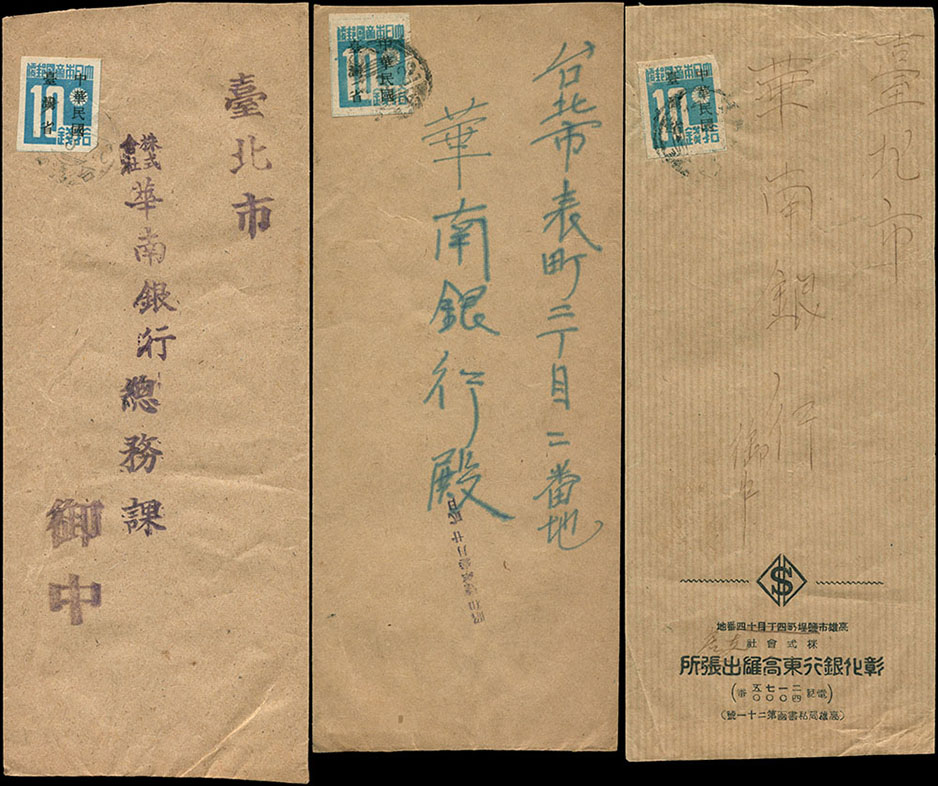 大日本帝國郵便
中華民國
臺灣省
10
拾錢
臺北市
株式會社
華南銀行總務課
御中
大日本帝國郵便
中華民國
臺灣省
10
拾錢
台北市表町二丁目二番地
華南銀行殿
大日本帝國郵便
中華民國
臺灣省
10
拾錢
臺北市
華南銀行
御中
S
高雄市鹽埕町四丁目十四番地
株式會社
彰化銀行東高雄出張所
(電話二一七五番)
四〇〇〇
(高雄局私書函第二十一號)